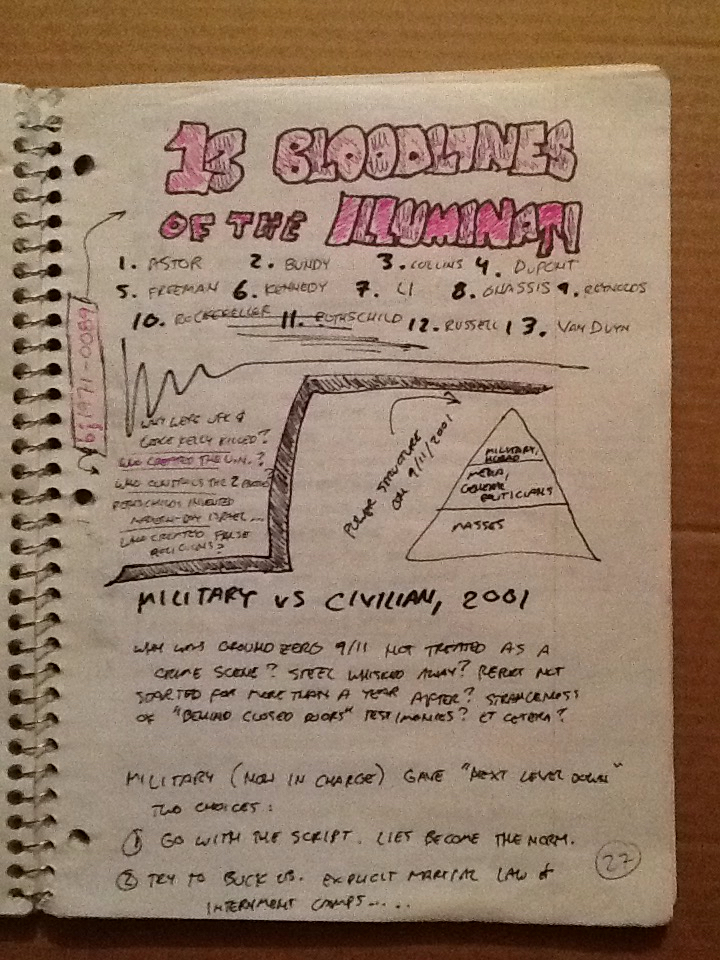 13 BLOODLINES
OF THE ILLUMINATI
1. ASTOR 2. BUNDY 3. COLLINS 4. DUPONT
5. FREEMAN 6. KENNEDY 7. LI 8. ONASSIS 9. REYNOLDS
10. ROCKEFELLER 11. ROTHSCHILD 12. RUSSELL 13. VAN DUYN
WHY WERE JFK &
GRACE KELLY KILLED?
WHO CREATED THE U.N.?
WHO CONTROLS THE 2
ROTHSCHILDS INVENTED
MODERN-DAY ISRAEL...
WHO CREATED FALSE
RELIGIONS?
POWER STRUCTURE
ON 9/11/2001
MILITARY,
MEDIA,
GENERAL
POLITICIANS
MASSES
MILITARY VS CIVILIAN, 2001
WHY WAS GROUND ZERO 9/11 NOT TREATED AS A
CRIME SCENE? STEEL WHISKED AWAY? REPORT NOT
STARTED FOR MORE THAN A YEAR AFTER? STRANGENESS
OF "BEHIND CLOSED DOORS" TESTIMONIES? ET CETERA?
MILITARY (NOW IN CHARGE) GAVE "NEXT LEVEL DOWN"
TWO CHOICES:
① GO WITH THE SCRIPT. LIES BECOME THE NORM.
② TRY TO BUCK US. EXPLICIT MARTIAL LAW &
INTERNMENT CAMPS.....
27